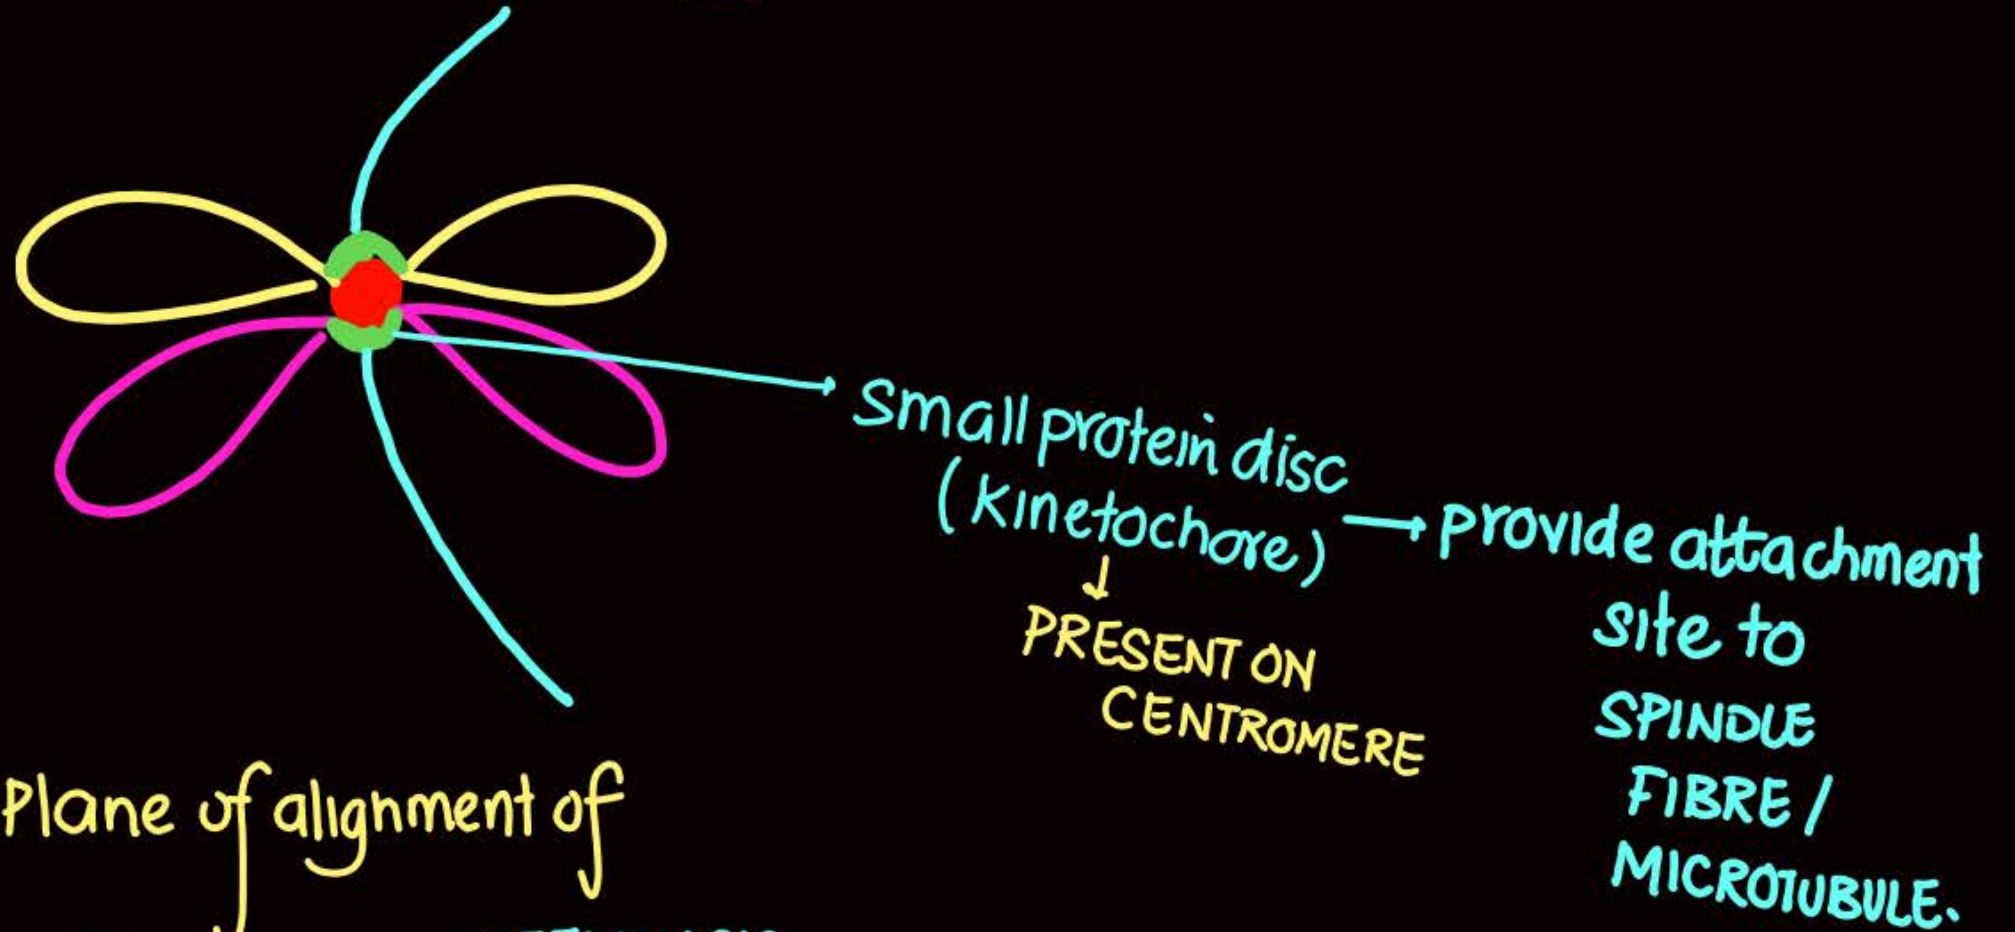 small protein disc
(Kinetochore) → provide attachment
site to
SPINDLE
FIBRE /
MICROTUBULE.
↓
PRESENT ON
CENTROMERE
Plane of alignment of